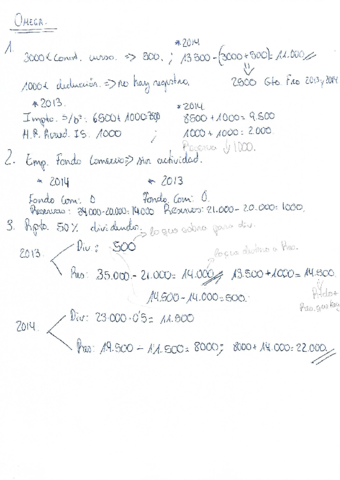 OMEGA.
1.
* 2014
3000€ Const. curso. => 500. ; 13.500 - (3000 + 500) = 11.000
1000€ deducción. => no hay registro. 2500 Gto Fro 2013 y 2014
* 2013. * 2014.
Impto. s/bº: 6500 + 1000 8500 + 1000 = 9.500
H.P. Acreed. I.S. 1000 1000 + 1000 = 2.000
Reservas ↓ 1000.
2. Emp. Fondo Comercio => sin actividad.
* 2014 * 2013
Fondo Com: 0 Fondo Com: 0.
Reservas: 34.000 - 20.000 = 14.000 Reservas: 21.000 - 20.000 = 1000.
3. Rpto. 50% dividendo.
2013 Div: 500 lo que sobra para div.
Res: 35.000 - 21.000 = 14.000 13.500 + 1000 = 14.500.
14.500 - 14.000 = 500.
2014 Div: 23.000 · 0'5 = 11.500
Res: 19.500 - 11.500 = 8000; 8000 + 14.000 = 22.000.